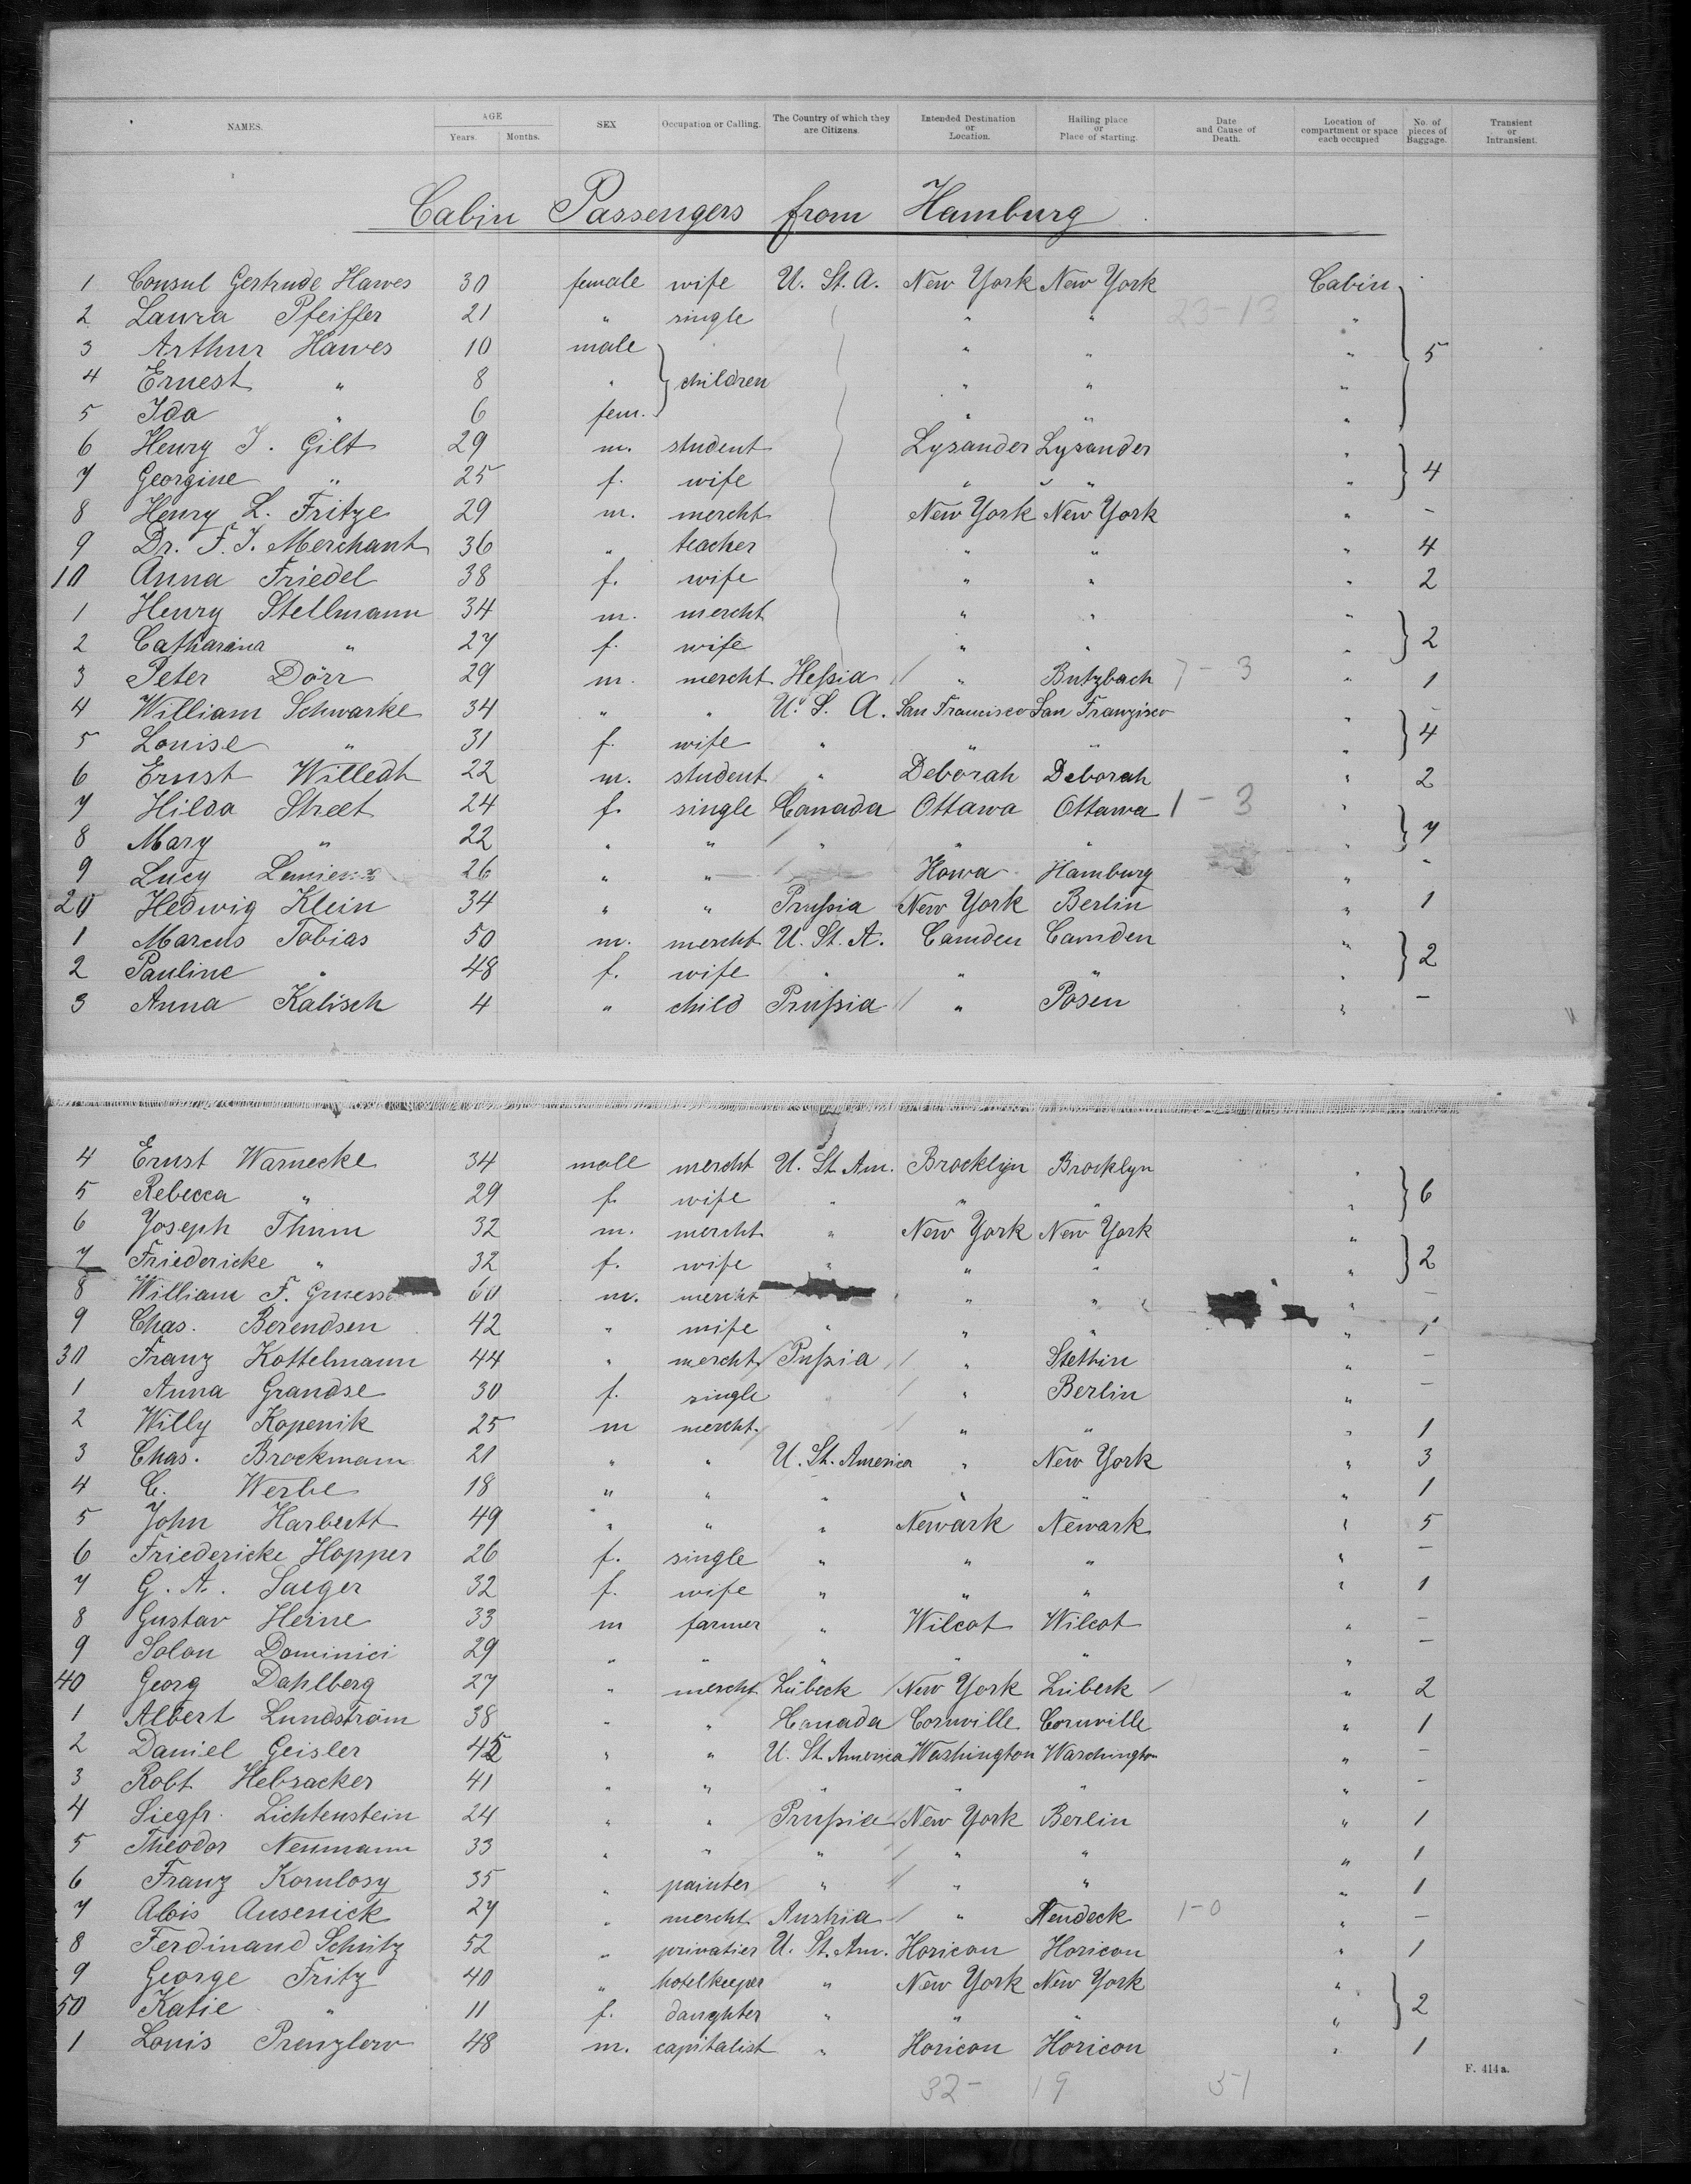 NAMES. AGE Years. Months. SEX Occupation or Calling. The Country of which they are Citizens. Intended Destination or Location. Hailing place or Place of starting. Date and Cause of Death. Location of compartment or space each occupied No. of pieces of Baggage. Transient or Intransient.
Cabin Passengers from Hamburg
1 Consul Gertrude Hawes 30 female wife U. St. A. New York New York Cabin
2 Laura Pfeiffer 21 " single " " 23-13 "
3 Arthur Hawes 10 male " " " 5
4 Ernest " 8 " children " " "
5 Ida " 6 fem. " " "
6 Henry J. Gilt 29 m. student Lysander Lysander "
7 Georgine " 25 f. wife " " " 4
8 Henry L. Fritze 29 m. mercht New York New York " -
9 Dr. F. J. Merchant 36 " teacher " " " 4
10 Anna Friedel 38 f. wife " " " 2
1 Henry Stellmann 34 m. mercht " " "
2 Catharina " 27 f. wife " " " 2
3 Peter Dörr 29 m. mercht Heßia " Butzbach 7-3 " 1
4 William Schwarke 34 " " U. S. A. San Francisco San Franzisco "
5 Louise " 31 f. wife " " " " 4
6 Ernst Willedt 22 m. student " Deborah Deborah " 2
7 Hilda Street 24 f. single Canada Ottawa Ottawa 1-3 "
8 Mary " 22 " " " " " " 7
9 Lucy 26 " " Howa Hamburg " -
20 Hedwig Klein 34 " " Prußia New York Berlin " 1
1 Marcus Tobias 50 m. mercht U. St. A. Camden Camden "
2 Pauline " 48 f. wife " " " " 2
3 Anna Kalisch 4 " child Prußia " Posen " -
4 Ernst Warnecke 34 male mercht U. St. Am. Brocklyn Brocklyn "
5 Rebecca " 29 f. wife " " " " 6
6 Yoseph Thum 32 m. mercht " New York New York "
7 Friedericke " 32 f. wife " " " " 2
8 William F. 60 m. mercht " " " -
9 Chas. Berendsen 42 " wife " " " " 1
30 Franz Kottelmann 44 " mercht Pußia " Stettin " -
1 Anna Grandse 30 f. single " " Berlin " -
2 Willy Kopenik 25 m mercht " " " 1
3 Chas. Brockmann 21 " " U. St. America " New York " 3
4 C. Werbe 18 " " " " " " 1
5 John Harbutt 49 " " " Newark Newark " 5
6 Friedericke Hopper 26 f. single " " " " -
7 G. A. Saeger 32 f. wife " " " " 1
8 Gustav Heine 33 m farmer " Wilcot Wilcot " -
9 Solon Dominici 29 " " " " " " -
40 Georg Dahlberg 27 " mercht Lübeck New York Lübeck " 2
1 Albert Lundström 38 " " Canada Cornville Cornville " 1
2 Daniel Geisler 45 " " U. St. America Washington Waschington " -
3 Robt. Hebsacker 41 " " " " " " -
4 Siegfr. Lichtenstein 24 " " Prußia New York Berlin " 1
5 Theodor Neumann 33 " " " " " " 1
6 Franz Kornlosy 35 " painter " " " " 1
7 Alois Ausenick 27 " mercht Austria " Neudeck 1-0 " -
8 Ferdinand Schütz 52 " privatier U. St. Am. Horicon Horicon " 1
9 George Fritz 40 " hotelkeeper " New York New York "
50 Katie " 11 f. daughter " " " " 2
1 Louis Prenzlow 48 m. capitalist " Horicon Horicon " 1
F. 414a.
32- 19 51